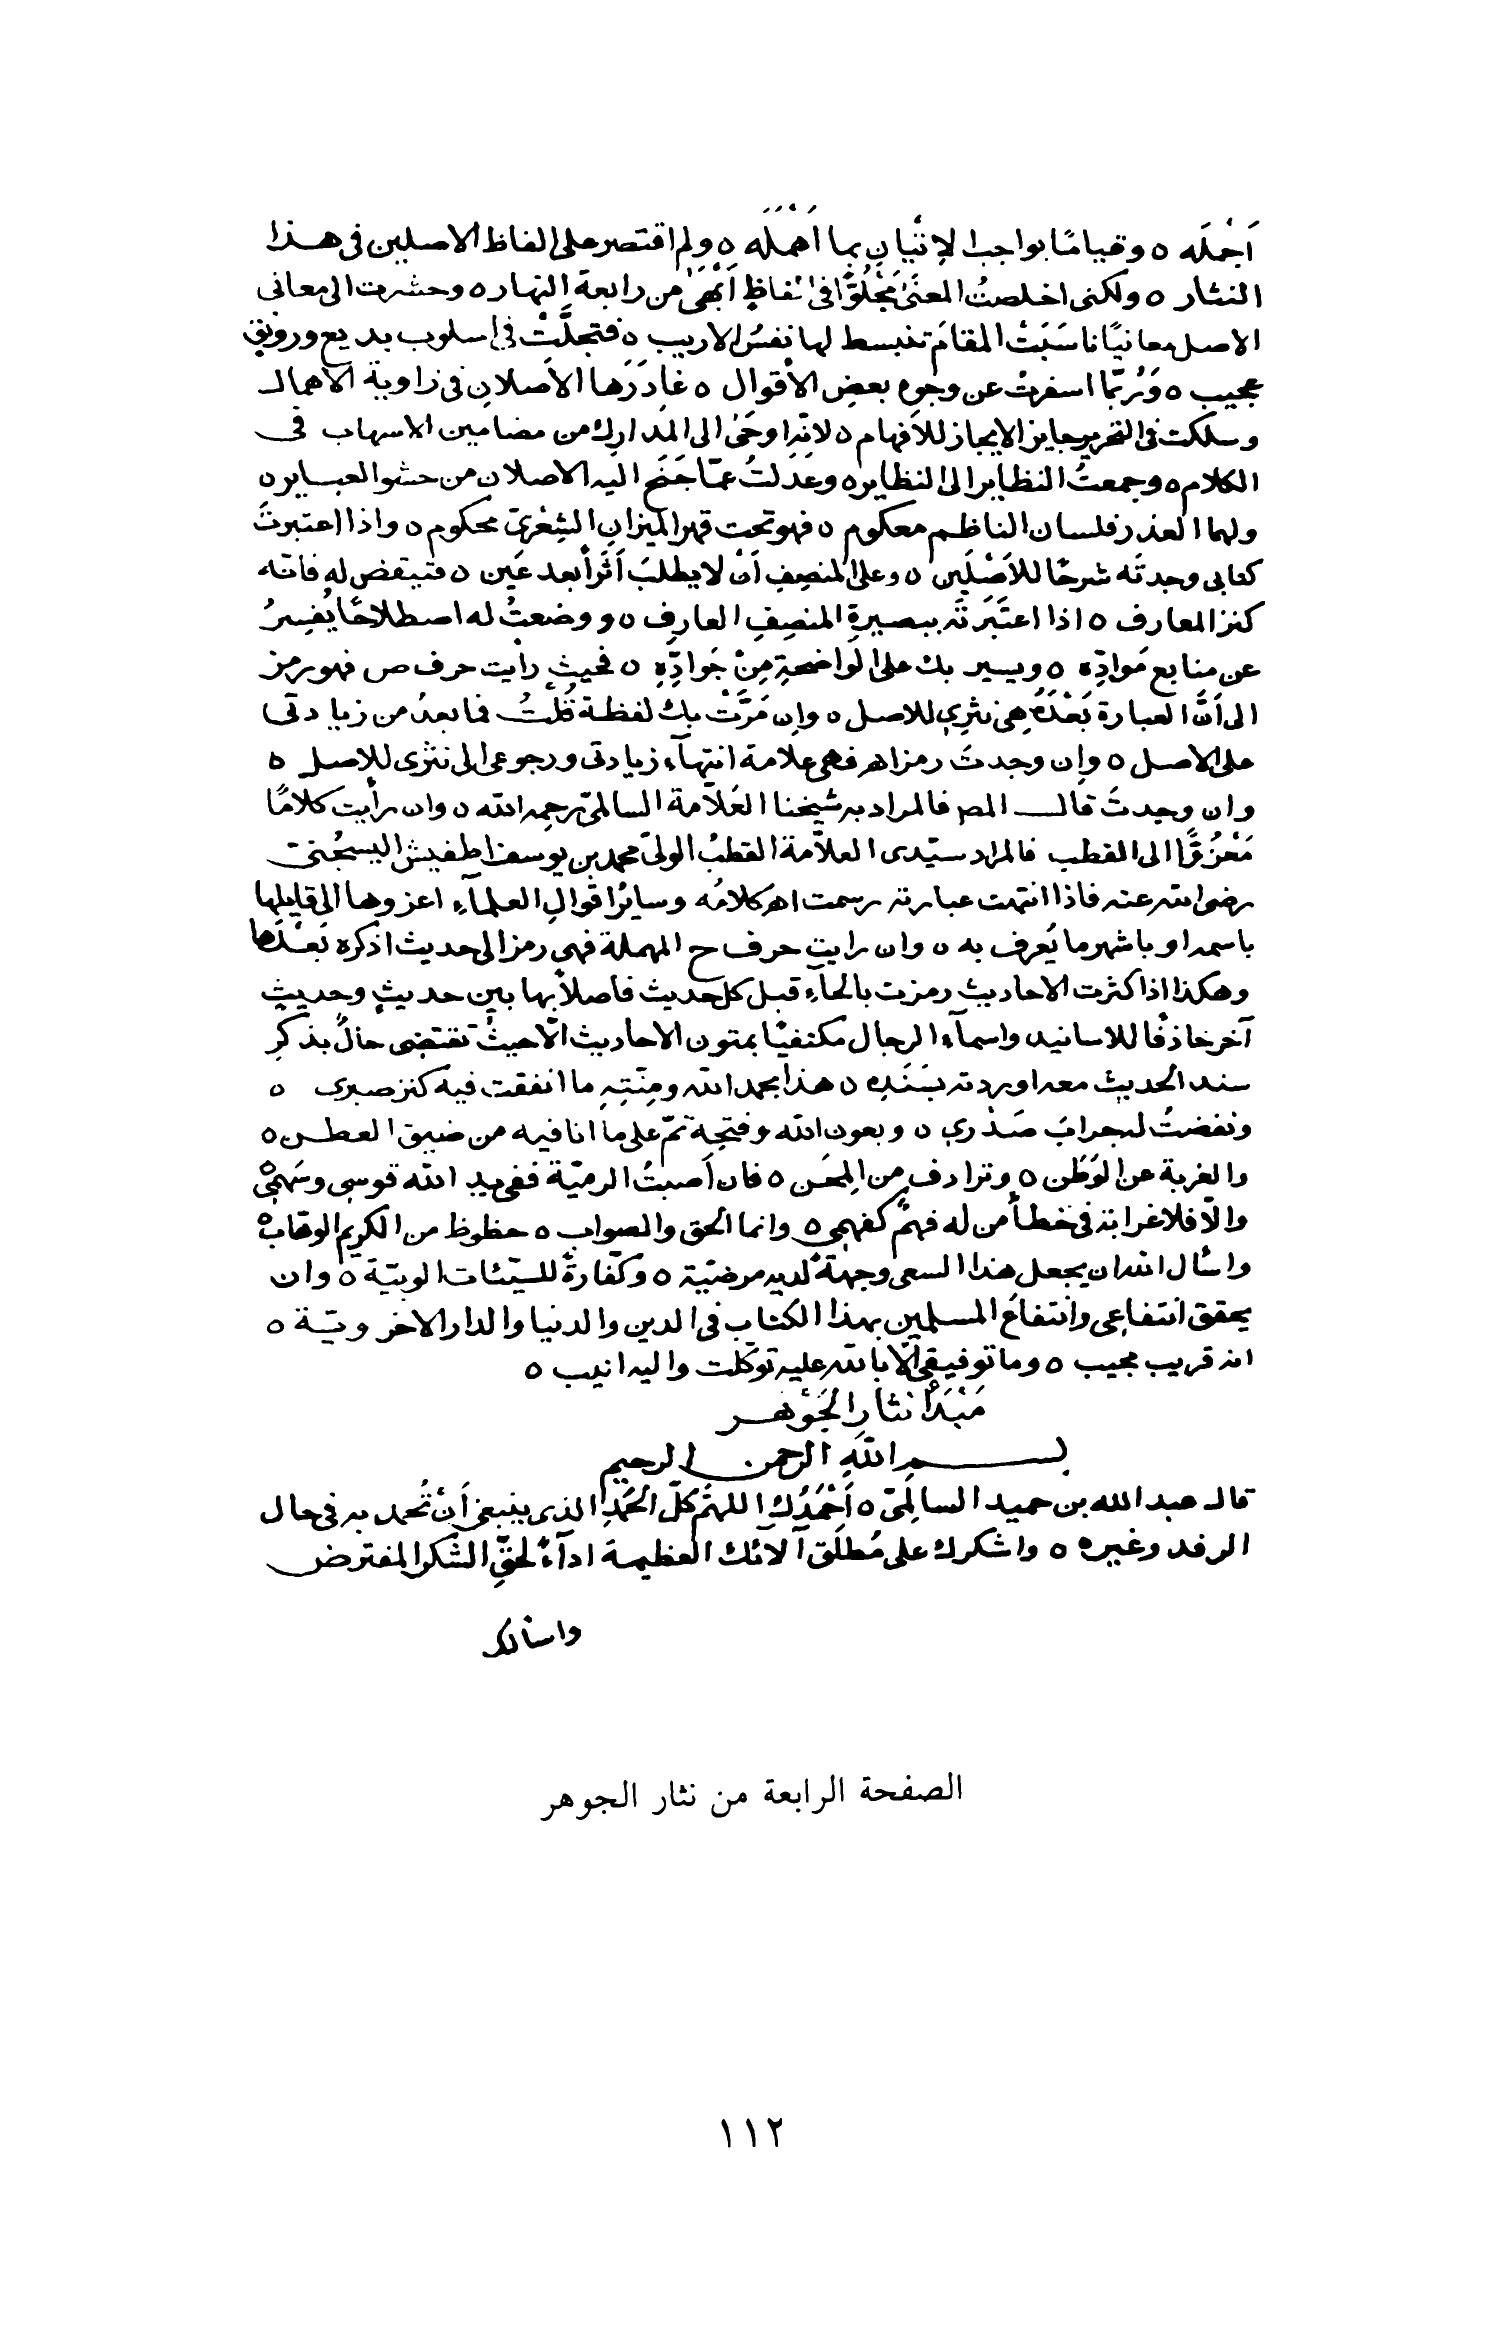 اَجْمَلَه ٥ وقيامًا بواجب الإتْيانِ بما اَهْمَلَه ٥ ولم اقتصر على الفاظ الاصلين فى هذا
النثار ٥ ولكنى اخلصتُ المعنَى مَجْلُوًّا فى الفاظٍ اَبْهَى من رابعة النهار ٥ وحشرت الى معانى
الاصل معانيًا ناسَبَتْ المقامَ تنبسط لها نفسُ الاريب ٥ فتجلَّتْ فى اسلوب بديع ورونقٍ
عجيب ٥ وَرُبّما اسفرتْ عن وجوه بعضِ الأقوال ٥ غادَرَها الأصلانِ فى زاوية الاهمال
وسلكت فى التحرير جايز الايجاز للأفهام ٥ لانه اوحَى الى المَدارِك من مضامين الاسهاب فى
الكلام ٥ وجمعتُ النظاير الى النظاير ٥ وعدلتُ عمّا جَنَحَ اليه الاصلان من حشو العباير ٥
ولهما العذر فلسان الناظم معكوم ٥ فهو تحت قهر الميزانِ الشِعْرىّ محكوم ٥ واذا اعتبرتَ
كتابى وجدتَه شرحًا للأَصْلَين ٥ وعلى المنصِفِ اَنْ لا يطلبَ اَثَراً بعد عَين ٥ فتيقض له فانّه
كنز المعارف ٥ اذا اعتَبَرتَه ببصيرةِ المنصِفِ العارِف ٥ ووضعتُ له اصطلاحًا يُفسِرُ
عن منابع مَوادِّه ٥ ويسير بك على الوَاضحةِ مِنْ جَوادِّهِ ٥ فحيث رأيت حرف ص فهو رمز
الى اَنَّ العبارة بَعْدَهُ هى نثرِى للاصل ٥ وإن مَرَّتْ بك لفظة قُلْتُ فما بعدُ من زيادتى
على الاصل ٥ وإن وجدتَ رمز اهـ فهى علامة انتهآء زيادتى ورجوعى الى نثرى للاصل ٥
وان وجدتَ قال المصـ فالمراد به شيخنا العَلاّمة السالمىّ رحِمه الله ٥ وان رأيت كلامًا
مَعْزُوًّا الى القطب فالمراد سيّدى العلاّمة القطبُ الولىّ محمد بن يوسف اطفيش اليسجُنىّ
رضى الله عنه فاذا انتهت عبارته رسمت اهـ كلامُه وسايرُ اقوالِ العلمآءِ اعزوها الى قايلها
باسمه او باشهر ما يُعرف به ٥ وان رايت حرف ح المهملة فهى رمز الى حديث اذكره بَعْدَها
وهكذا اذا كثرت الاحاديث رمزت بالحآءِ قبل كل حديث فاصلاً بها بين حديثٍ وحديثٍ
آخر حاذفًا للاسانيد واسمآء الرجال مكتفيًا بمتون الاحاديث الّا حيث تقتضى حالٌ بذكرِ
سند الحديث معه اوردته بسَنَدِه ٥ هذا بحمد الله ومِنّتِهِ ما انفقت فيه كنز صبرى ٥
ونفضتُ له جرابَ صَدْرِى ٥ وبعون الله وفتحِه تمّ على ما انا فيه من ضيق العطن ٥
والغربة عن الوَطَن ٥ وترادف من المِحَن ٥ فان اَصبتُ الرميّة ففى يد الله قوسى وسَهمِىْ
والّا فلا غرابة فى خطأ من له فهمٌ كفهمى ٥ وانما الحق والصواب ٥ حظوظ من الكريم الوهّاب ٥
واسْأل الله ان يجعل هذا السعى وجهةً لديه مرضيّة ٥ وكفّارةً للسيّئات الوبيّة ٥ وان
يحقق انتفاعى وانتفاعَ المسلمين بهذا الكتاب فى الدين والدنيا والدار الاخرويّة ٥
انه قريب مجيب ٥ وما توفيقى الّا بالله عليه توكّلت واليه انيب ٥
مَبْدَأُ نثارِ الجَوْهر
بسم اللهِ الرحمن الرحيم
قال عبد الله بن حميد السالمِىّ ٥ اَحْمَدُك اللهمّ كلَّ الحَمدِ الذى ينبغى اَنْ تُحمد به فى حال
الرفد وغيره ٥ واشكرك على مُطلَق آلآئك العظيمة ادآءً لحقِّ الشكر المفترض
واسألك
الصفحة الرابعة من نثار الجوهر
١١٢